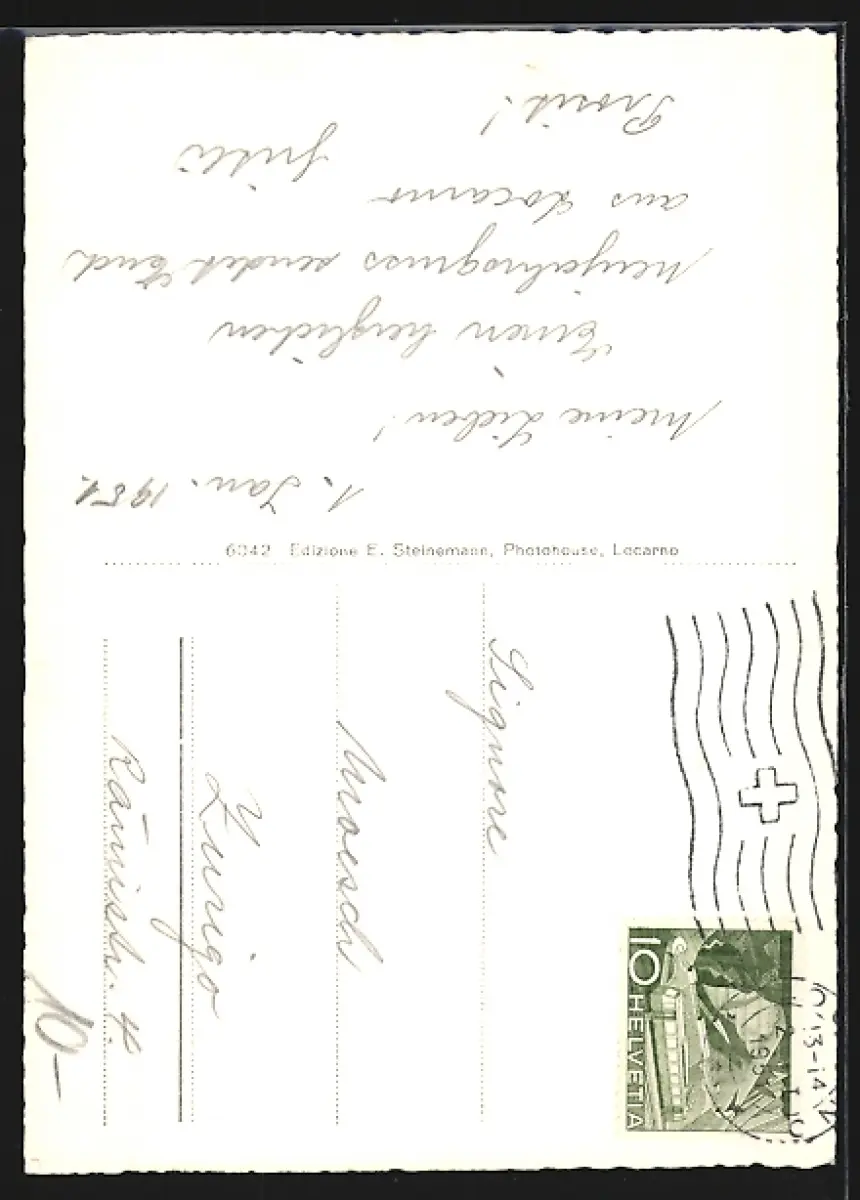 1. Jan. 1951.
Meine Lieben!
Einen herzlichen
Neujahrsgruss sendet Euch
aus Locarno
Prosit!
6042 Edizione E. Steinemann, Photohouse, Locarno
Signore
Moesch
Zurigo
Rämistr. 4.
10-
10 HELVETIA
13-14